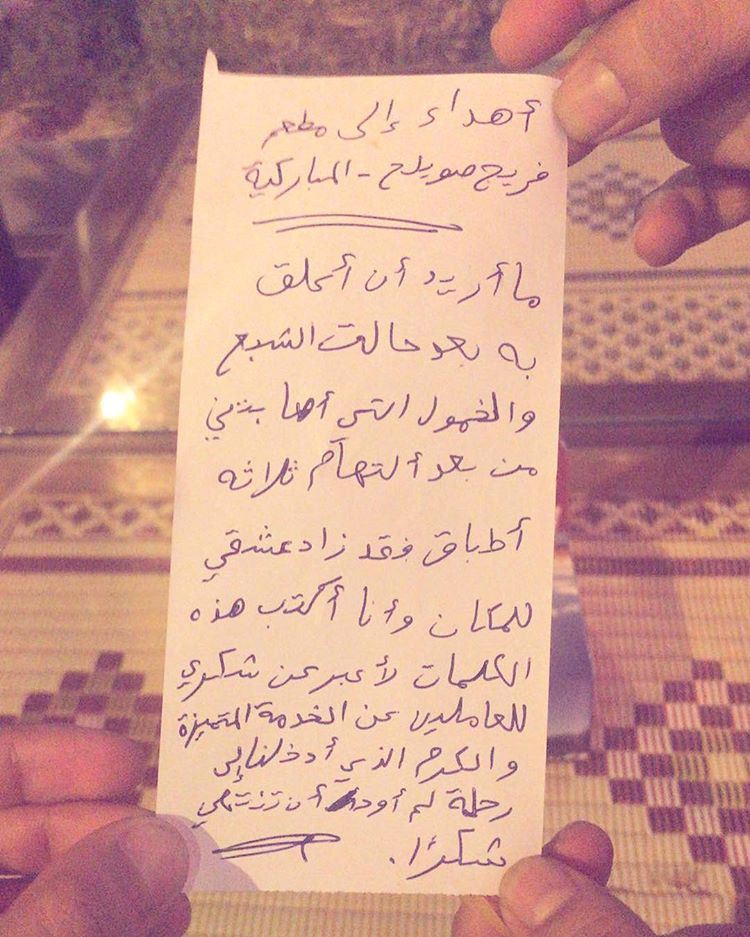 أهداء إلى مطعم
فريج صويلح - المباركية
ما أريد أن أعلق
به بعد حالت الشبع
والخمول التي أصابتني
من بعد ألتهام ثلاثه
أطباق فقد زاد عشقي
للمكان وأنا أكتب هذه
الكلمات لأعبر عن شكري
للعاملين عن الخدمة المتميزة
والكرم الذي أدخلنا إلى
رحلة لم أود أن تنتهي
شكرًا.